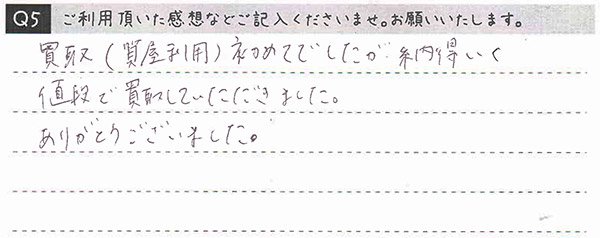 Q5 ご利用頂いた感想などご記入くださいませ。お願いいたします。
買取(質屋利用)初めてでしたが納得いく
値段で買取していただきました。
ありがとうございました。